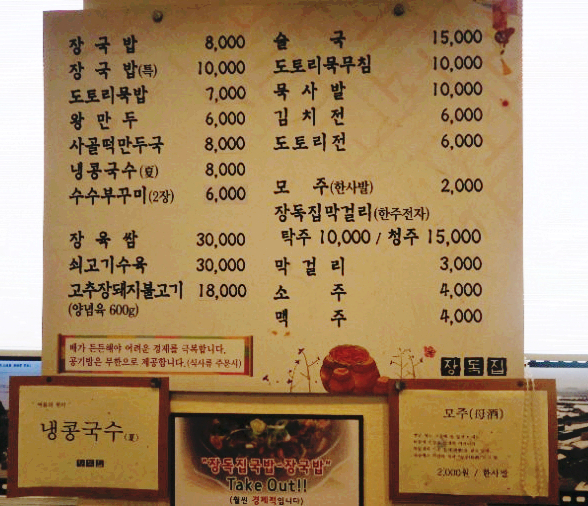 장국밥 8,000
장국밥(特) 10,000
도토리묵밥 7,000
왕만두 6,000
사골떡만두국 8,000
냉콩국수(夏) 8,000
수수부꾸미(2장) 6,000
장육쌈 30,000
쇠고기수육 30,000
고추장돼지불고기 18,000
(양념육 600g)
술국 15,000
도토리묵무침 10,000
묵사발 10,000
김치전 6,000
도토리전 6,000
모주(한사발) 2,000
장독집막걸리(한주전자)
탁주 10,000 / 청주 15,000
막걸리 3,000
소주 4,000
맥주 4,000
배가 든든해야 어려운 경제를 극복합니다.
공기밥은 무한으로 제공합니다.(식사류 주문시)
장독집
냉콩국수(夏)
"장독집국밥-장국밥"
Take Out!!
(훨씬 경제적입니다)
모주(母酒)
2,000원 / 한사발